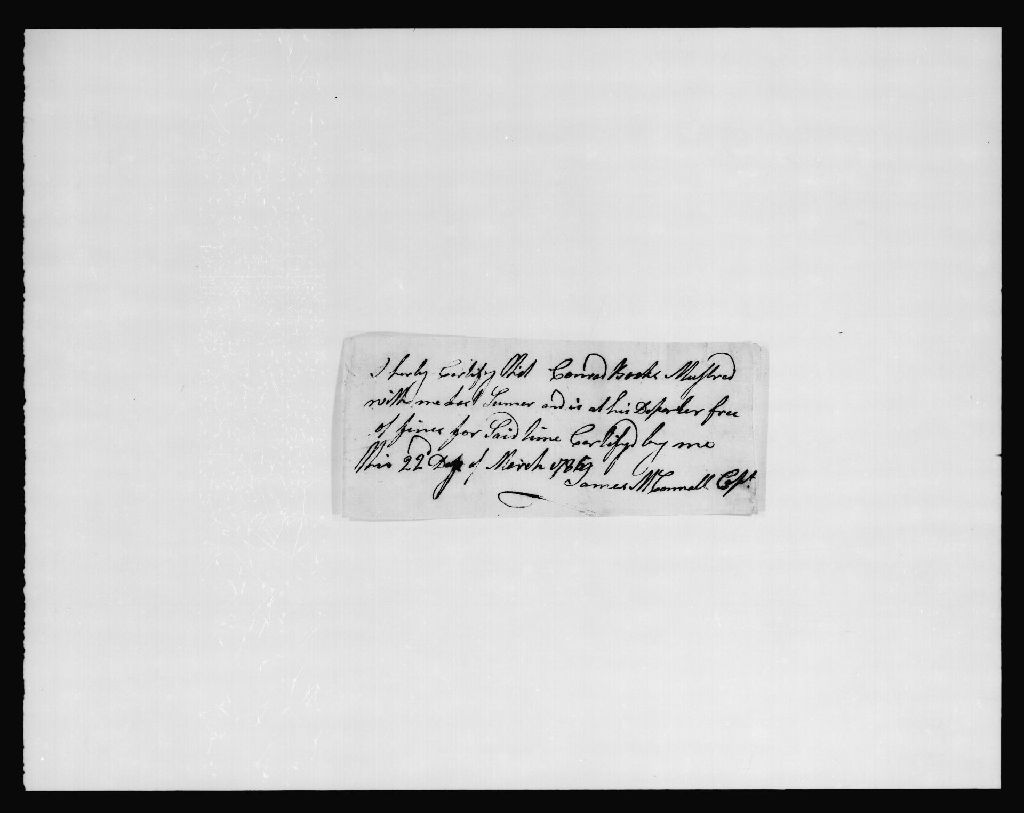 I herby Certify that Conrad Mustred
with me last Sumer and is at his Deperter free
of fines for Said time Certifyd by me
this 22d Day of March
James McConnell Capt